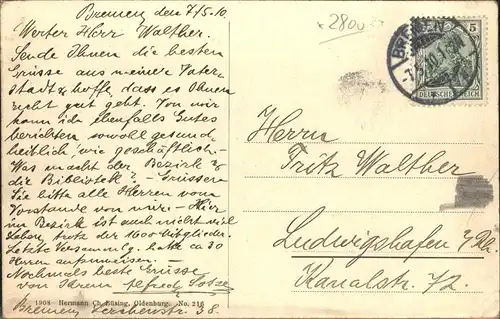 Bremen den 7/5.10
Werter Herr Walther.
Sende Ihnen die besten
Grüsse aus meiner Vater-
stadt & hoffe, dass es Ihnen
recht gut geht. Von mir
kann ich ebenfalls Gutes
berichten sowohl gesund-
heitlich wie geschäftlich.-
Was macht der Bezirk &
die Bibliotek? - Grüssen
Sie bitte alle Herren vom
Vorstande von mir - Hier
im Bezirk ist auch nicht viel
Leben trotz der 1600 Mitglieder.
Letzte Versamml'g. hatte ca 30
Herren aufzuweisen. -
Nochmals beste Grüsse
von Ihrem Alfred
Bremen 38.
1908 Hermann Ch. Büsing, Oldenburg. No. 216
2800
BREMEN
5
DEUTSCHES REICH
Herrn
Fritz Walther
Ludwigshafen a/Rh.
Kanalstr. 72.